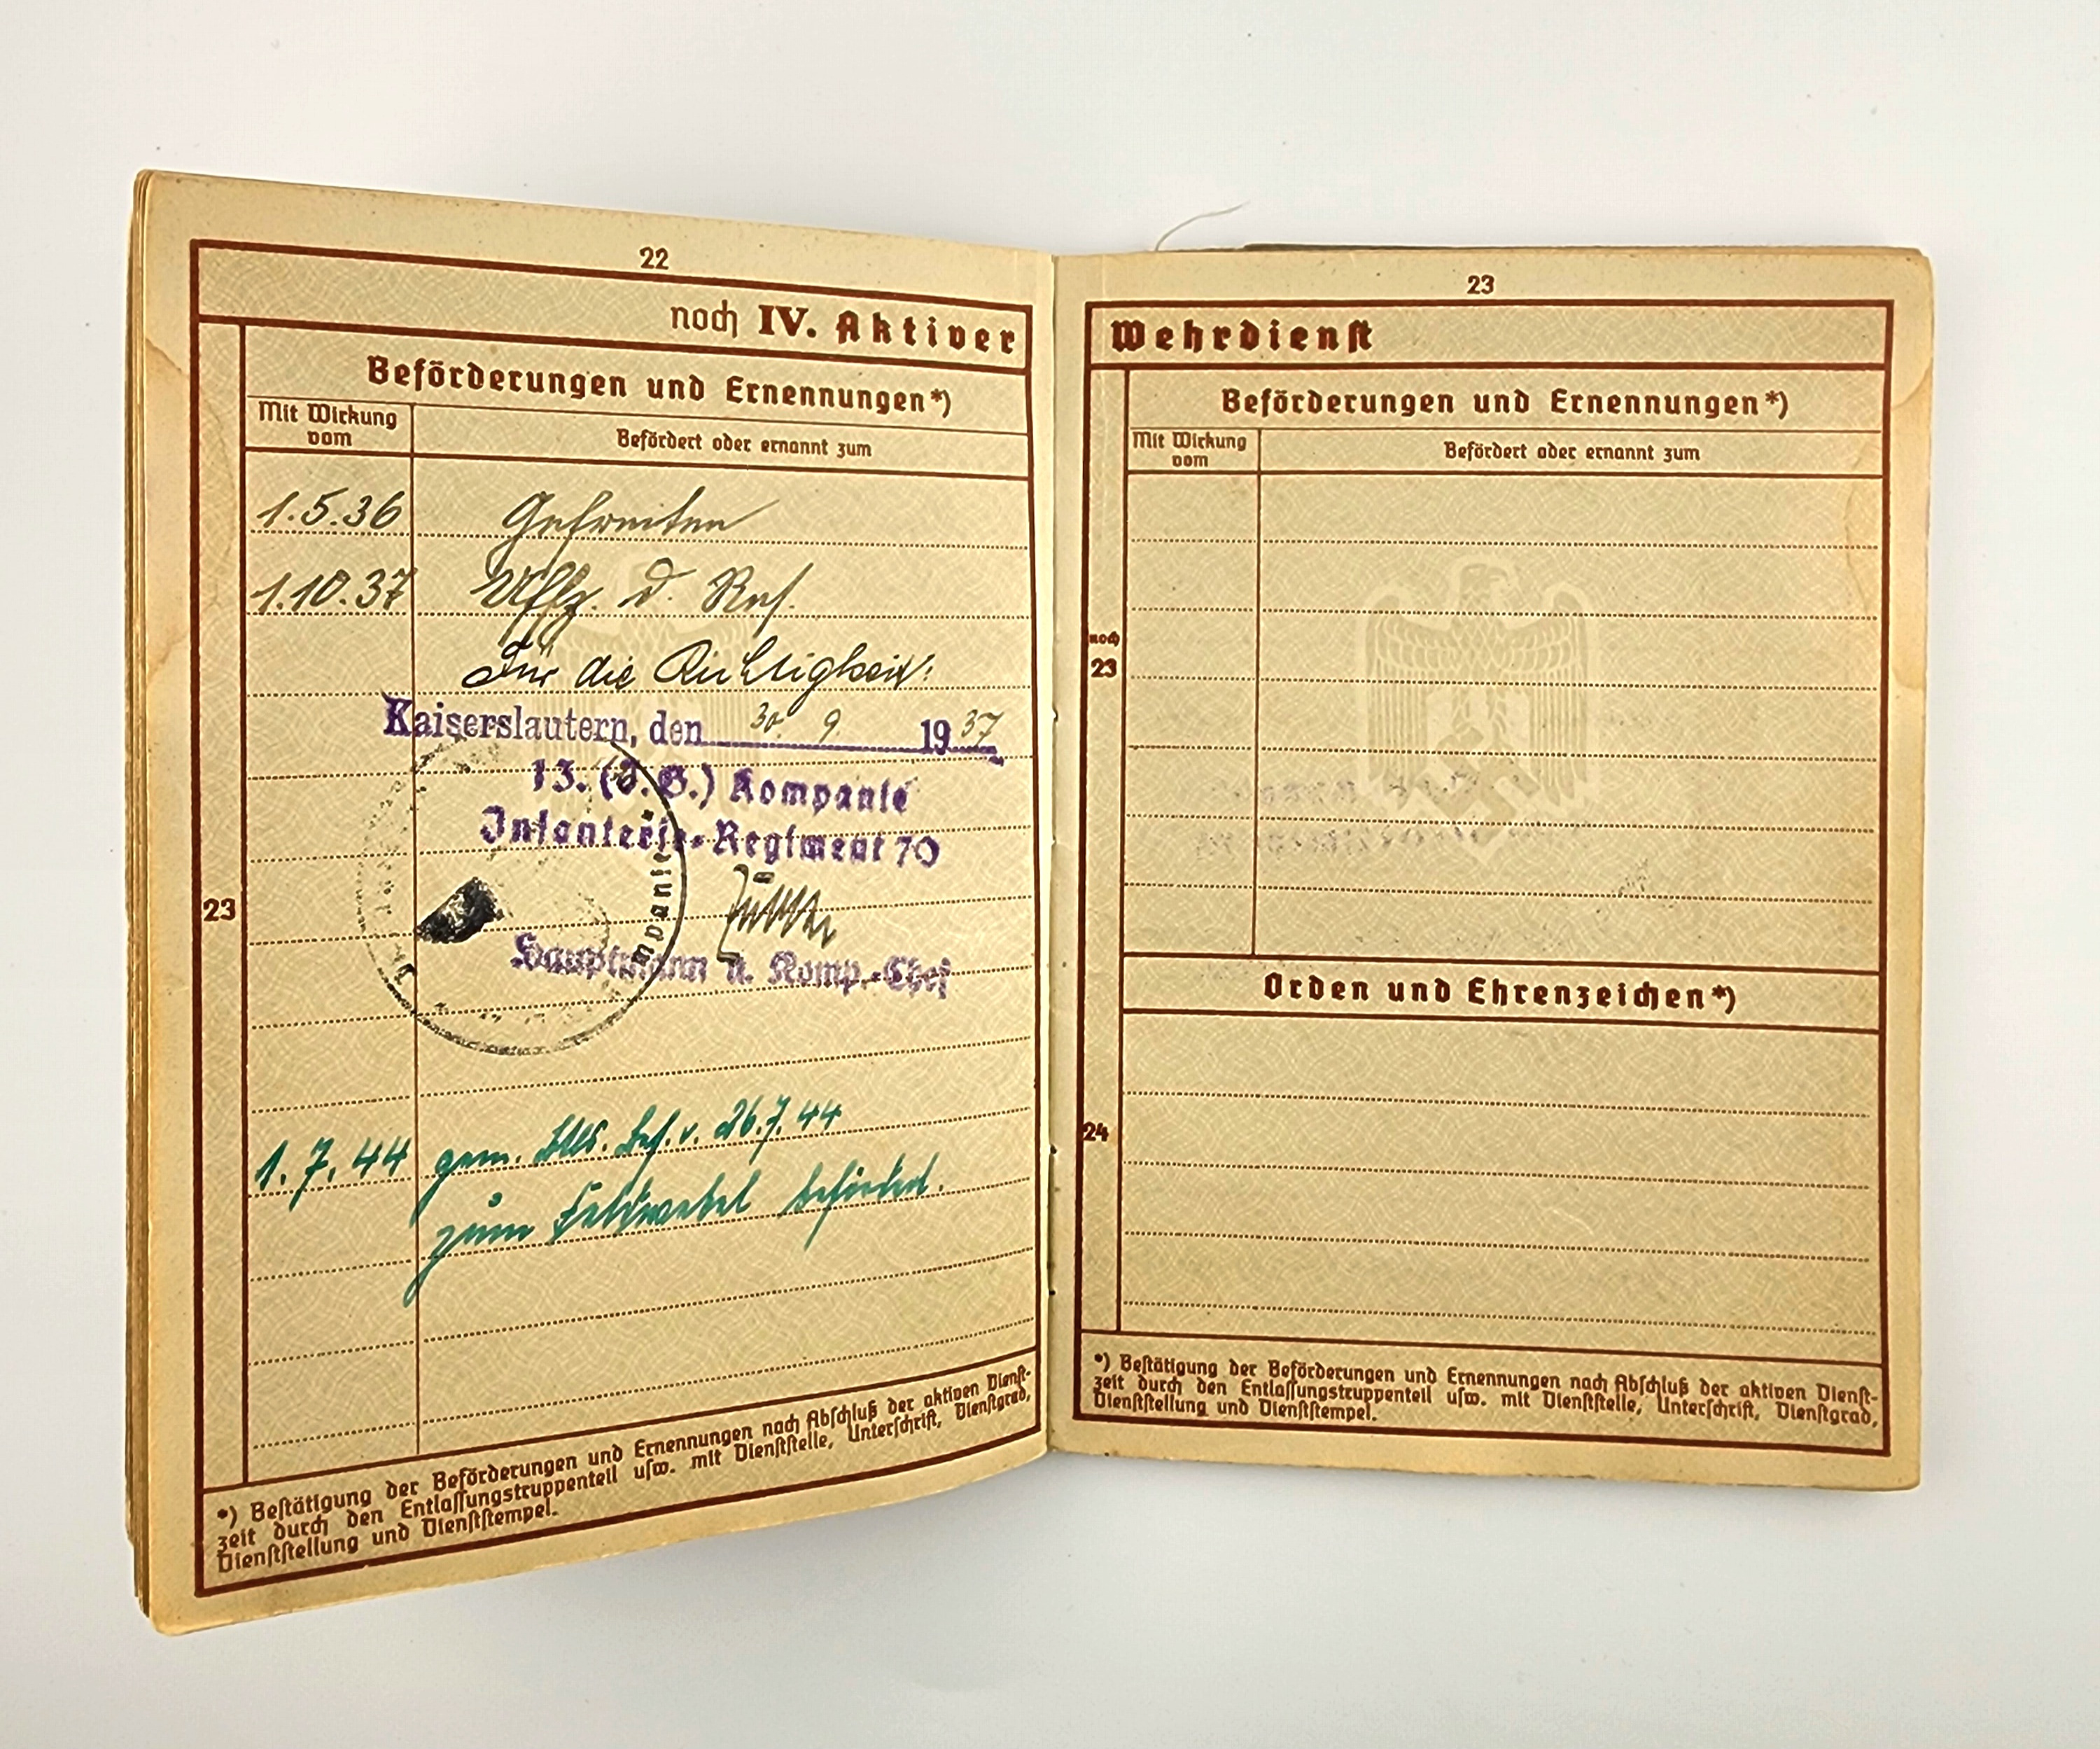 22
noch IV. Aktiver
Beförderungen und Ernennungen*)
Mit Wirkung
vom
Befördert oder ernannt zum
1.5.36 Gefreiten
1.10.37 Uffz. d. Res.
Für die Richtigkeit:
Kaiserslautern, den 30. 9 1937
13. (I.G.) Kompanie
Infanterie-Regiment 70
Hauptmann u. Komp.-Chef
23
1.7.44 gem. v. 26.7.44
zum Feldwebel befördert.
*) Bestätigung der Beförderungen und Ernennungen nach Abschluß der aktiven Dienst-
zeit durch den Entlassungstruppenteil usw. mit Dienststelle, Unterschrift, Dienstgrad,
Dienststellung und Dienststempel.
23
Wehrdienst
Beförderungen und Ernennungen*)
Mit Wirkung
vom
Befördert oder ernannt zum
noch
23
Orden und Ehrenzeichen*)
24
*) Bestätigung der Beförderungen und Ernennungen nach Abschluß der aktiven Dienst-
zeit durch den Entlassungstruppenteil usw. mit Dienststelle, Unterschrift, Dienstgrad,
Dienststellung und Dienststempel.